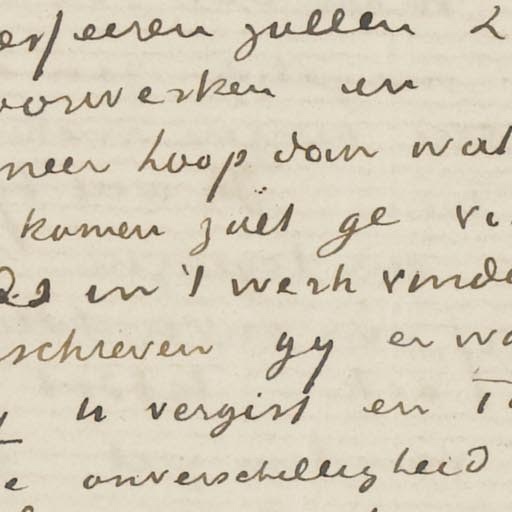 erfeeren zullen
voorwerken en
meer hoop dan wat
komen zult ge
in 't werk vinde
schreven gy er wa
u vergist en
onverschilligheid